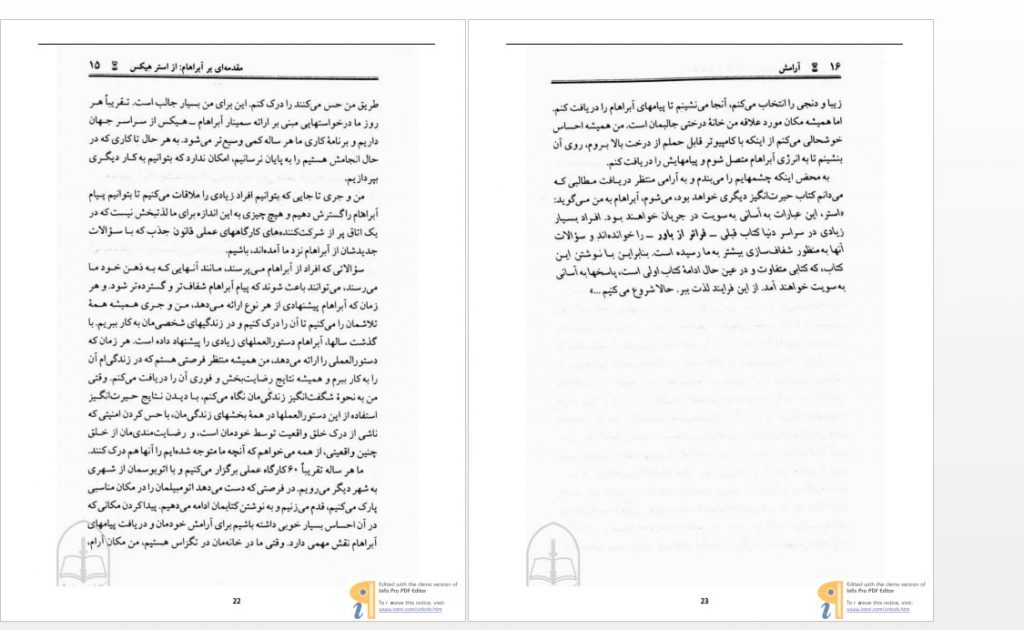 مقدمه‌ای بر آبراهام: از استر هیکس ۱۵
طریق من حس می‌کنند را درک کنم. این برای من بسیار جالب است. تقریباً هر
روز ما درخواستهایی مبنی بر ارائه سمینار آبراهام ـ هیکس از سراسر جهان
داریم و برنامهٔ کاری ما هر ساله کمی وسیع‌تر می‌شود. به هر حال تا کاری که در
حال انجامش هستیم را به پایان نرسانیم، امکان ندارد که بتوانیم به کار دیگری
بپردازیم.
من و جری تا جایی که بتوانیم افراد زیادی را ملاقات می‌کنیم تا بتوانیم پیام
آبراهام را گسترش دهیم و هیچ چیزی به این اندازه برای ما لذتبخش نیست که در
یک اتاق پر از شرکت‌کننده‌های کارگاههای عملی قانون جذب که با سؤالات
جدیدشان از آبراهام نزد ما آمده‌اند، باشیم.
سؤالاتی که افراد از آبراهام می‌پرسند، مانند آنهایی که به ذهن خود ما
می‌رسند، می‌توانند باعث شوند که پیام آبراهام شفاف‌تر و گسترده‌تر شود. و هر
زمان که آبراهام پیشنهادی از هر نوع ارائه می‌دهد، من و جری همیشه همهٔ
تلاشمان را می‌کنیم تا آن را درک کنیم و در زندگیهای شخصی‌مان به کار ببریم. با
گذشت سالها، آبراهام دستورالعملهای زیادی را پیشنهاد داده است. هر زمان که
دستورالعملی را ارائه می‌دهد، من همیشه منتظر فرصتی هستم که در زندگی‌ام آن
را به کار ببرم و همیشه نتایج رضایت‌بخش و فوری آن را دریافت می‌کنم. وقتی
من به نحوهٔ شگفت‌انگیز زندگی‌مان نگاه می‌کنم، با دیدن نتایج حیرت‌انگیز
استفاده از این دستورالعملها در همهٔ بخشهای زندگی‌مان، با حس کردن امنیتی که
ناشی از درک خلق واقعیت توسط خودمان است، و رضایت‌مندی‌مان از خلق
چنین واقعیتی، از همه می‌خواهم که آنچه ما متوجه شده‌ایم را آنها هم درک کنند.
ما هر ساله تقریباً ۶۰ کارگاه عملی برگزار می‌کنیم و با اتوبوسمان از شهری
به شهر دیگر می‌رویم. در فرصتی که دست می‌دهد اتومبیلمان را در مکان مناسبی
پارک می‌کنیم، قدم می‌زنیم و به نوشتن کتابمان ادامه می‌دهیم. پیدا کردن مکانی که
در آن احساس بسیار خوبی داشته باشیم برای آرامش خودمان و دریافت پیامهای
آبراهام نقش مهمی دارد. وقتی ما در خانه‌مان در تگزاس هستیم، من مکان آرام،
22
Edited with the demo version of
Infix Pro PDF Editor
To remove this notice, visit:
www.iceni.com/unlock.htm
۱۶ آرامش
زیبا و دنجی را انتخاب می‌کنم، آنجا می‌نشینم تا پیامهای آبراهام را دریافت کنم.
اما همیشه مکان مورد علاقه من خانهٔ درختی جالبمان است. من همیشه احساس
خوشحالی می‌کنم از اینکه با کامپیوتر قابل حملم از درخت بالا بروم، روی آن
بنشینم تا به انرژی آبراهام متصل شوم و پیامهایش را دریافت کنم.
به محض اینکه چشمهایم را می‌بندم و به آرامی منتظر دریافت مطالبی که
می‌دانم کتاب حیرت‌انگیز دیگری خواهد بود، می‌شوم، آبراهام به من می‌گوید:
«استر، این عبارات به آسانی به‌سویت در جریان خواهند بود. افراد بسیار
زیادی در سراسر دنیا کتاب قبلی ـ فراتر از باور ـ را خوانده‌اند و سؤالات
آنها به‌منظور شفاف‌سازی بیشتر به ما رسیده است. بنابراین با نوشتن این
کتاب، که کتابی متفاوت و در عین حال ادامهٔ کتاب اولی است، پاسخها به آسانی
به‌سویت خواهند آمد. از این فرایند لذت ببر. حالا شروع می‌کنیم ...»
23
Edited with the demo version of
Infix Pro PDF Editor
To remove this notice, visit:
www.iceni.com/unlock.htm